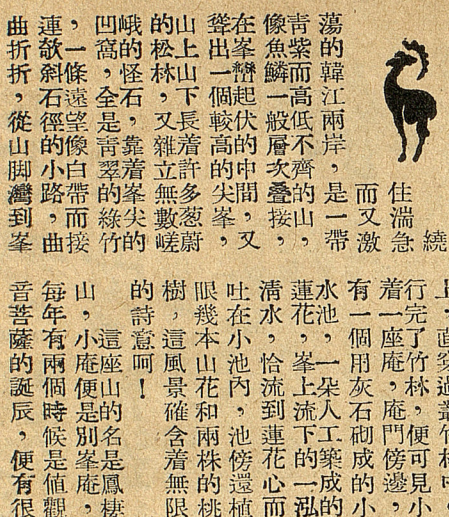 繞
住湍急
而又激
蕩的韓江兩岸，是一帶
青紫而高低不齊的山，
像魚鱗一般層次疊接，
在峯巒起伏的中間，又
聳出一個較高的尖峯，
山上山下長着許多葱蔚
的松林，又雜立無數嵯
峨的怪石，靠着峯尖的
凹窩，全是青翠的綠竹
，一條遠望像白帶而接
連欹斜石徑的小路，曲
曲折折，從山脚灣到峯
上，直穿過叢竹林中，
行完了竹林，便可見小
着一座庵，庵門傍邊，
有一個用灰石砌成的小
水池，一朵人工築成的
蓮花，峯上流下的一泓
清水，恰流到蓮花心而
吐在小池內，池傍還植
眼幾本山花和兩株的桃
樹，這風景確含着無限
的詩意呵！
這座山的名是鳳棲
山，小庵便是別峯庵，
每年有兩個時候是值觀
音菩薩的誕辰，便有很